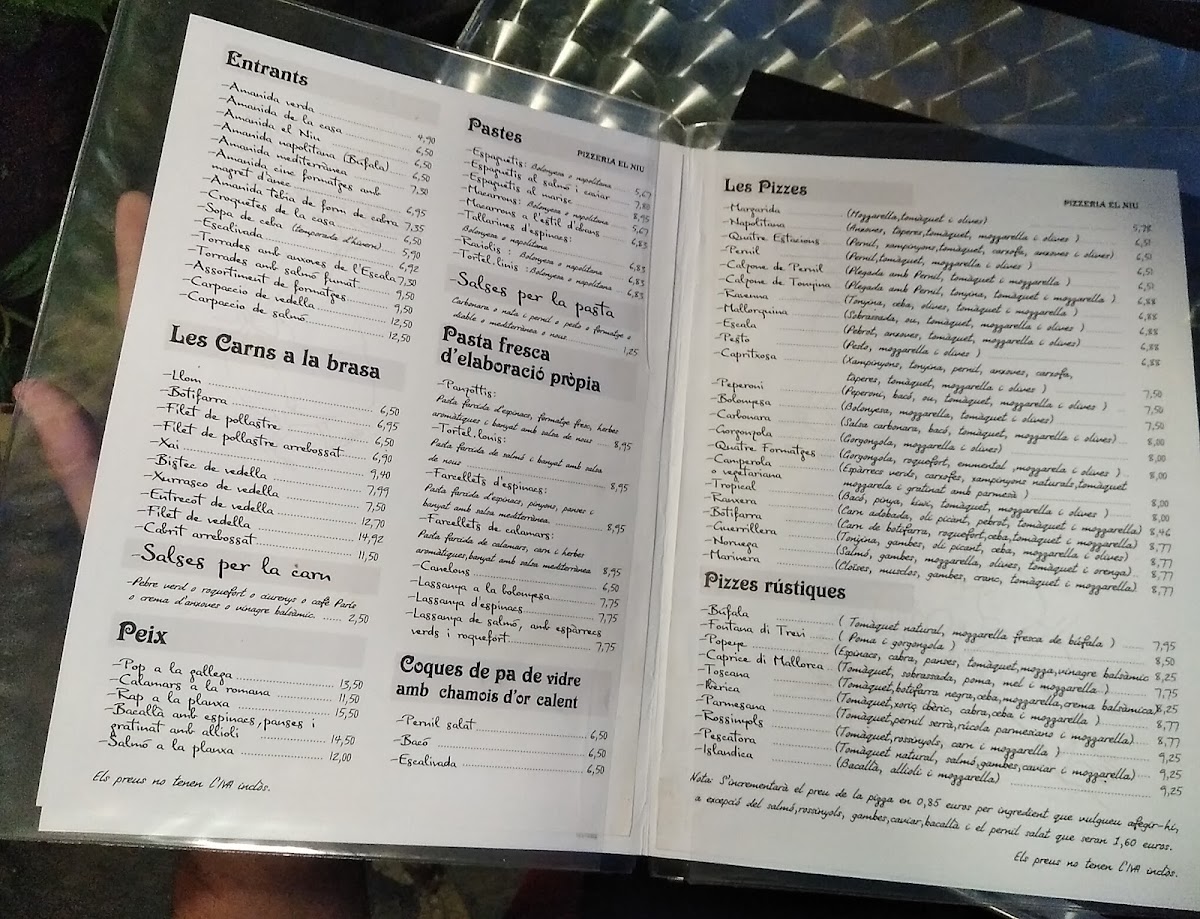 Entrants
-Amanida verda
-Amanida de la casa 4,90
-Amanida el Niu 6,50
-Amanida napolitana (Búfala) 6,50
-Amanida mediterrànea 6,50
-Amanida cinc formatges amb 7,30
magret d'ànec
-Amanida tèbia de form de cabra 6,95
-Croquetes de la casa 7,35
-Sopa de ceba (temporada d'hivern) 6,50
-Escalivada 5,90
-Torrades amb anxoves de l'Escala 6,92
-Torrades amb salmó fumat 7,30
-Assortiment de formatges 9,50
-Carpaccio de vedella 9,50
-Carpaccio de salmó 12,50
12,50
Les Carns a la brasa
-Llom 6,50
-Botifarra 6,95
-Filet de pollastre 6,50
-Filet de pollastre arrebossat 6,90
-Xai 9,40
-Bistec de vedella 7,99
-Xurrasco de vedella 7,50
-Entrecot de vedella 12,70
-Filet de vedella 14,92
-Cabrit arrebossat 11,50
-Salses per la carn
-Pebre verd o roquefort o ciurenys o café Paris
o crema d'anxoves o vinagre balsàmic. 2,50
Peix
-Pop a la gallega 13,50
-Calamars a la romana 11,50
-Rap a la planxa 15,50
-Bacallà amb espinacs,panses i
gratinat amb allioli 14,50
-Salmó a la planxa 12,00
Els preus no tenen l'IVA inclòs.
Pastes
PIZZERIA EL NIU
-Espaguetis: Bolonyesa o napolitana 5,67
-Espaguetis al salmó i caviar 7,80
-Espaguetis al marisc 8,95
-Macarrons: Bolonyesa o napolitana 5,67
-Macarrons a l'estil d'Arans 6,83
-Tallarines d'espinacs:
Bolonyesa o napolitana 6,83
-Raiolis : Bolonyesa o napolitana 6,83
-Tortel.linis :Bolonyesa o napolitana 6,83
-Salses per la pasta
Carbonara o nata i pernil o pesto o formatge o
diable o mediterrànea o nous 1,25
Pasta fresca
d'elaboració pròpia
-Panzottis:
Pasta farcida d'espinacs, formatge fresc, herbes
aromàtiques i banyat amb salsa de nous 8,95
-Tortel.lonis:
Pasta farcida de salmó i banyat amb salsa
de nous 8,95
-Farcellets d'espinacs:
Pasta farcida d'espinacs, pinyons, panses i
banyat amb salsa mediterrànea. 8,95
-Farcellets de calamars:
Pasta farcida de calamars, carn i herbes
aromàtiques,banyat amb salsa mediterrànea 8,95
-Canelons 6,50
-Lassanya a la bolonyesa 7,75
-Lassanya d'espinacs 7,75
-Lassanya de salmó, amb espàrrecs
verds i roquefort 7,75
Coques de pa de vidre
amb chamois d'or calent
-Pernil salat 6,50
-Bacó 6,50
-Escalivada 6,50
Les Pizzes
PIZZERIA EL NIU
-Margarida (Mozzarella,tomàquet i olives) 5,78
-Napolitana (Anxoves, tàperes,tomàquet, mozzarella i olives ) 6,51
-Quatre Estacions (Pernil, xampinyons,tomàquet, carxofa, anxoves i olives) 6,51
-Pernil (Pernil,tomàquet, mozzarella i olives ) 6,51
-Calçone de Pernil (Plegada amb Pernil, tomàquet i mozzarella ) 6,51
-Calçone de Tonyina (Plegada amb Pernil, tonyina, tomàquet i mozzarella ) 6,88
-Ravenna (Tonyina, ceba, olives, tomàquet i mozzarella ) 6,88
-Mallorquina (Sobrassada, ou, tomàquet, mozzarella i olives ) 6,88
-Escala (Pebrot, anxoves, tomàquet, mozzarella i olives) 6,88
-Pesto (Pesto, mozzarella i olives ) 6,88
-Capritxosa (Xampinyons, tonyina, pernil, anxoves, carxofa,
tàperes, tomàquet, mozzarella i olives ) 7,50
-Peperoni (Peperoni, bacó, ou, tomàquet, mozzarella i olives ) 7,50
-Bolonyesa (Bolonyesa, mozzarella, tomàquet i olives) 7,50
-Carbonara (Salsa carbonara, bacó, tomàquet, mozzarella i olives) 8,00
-Gorgonzola (Gorgonzola, mozzarella i olives) 8,00
-Quatre Formatges (Gorgonzola, roquefort, emmental ,mozzarela i olives ) 8,00
-Camperola (Espàrrecs verds, carxofes, xampinyons naturals,tomàquet
o vegetariana mozzarella i gratinat amb parmesà ) 8,00
-Tropical (Bacó, pinya, kiwi, tomàquet, mozzarella i olives ) 8,00
-Ranxera (Carn adobada, oli picant, pebrot, tomàquet i mozzarella) 8,46
-Botifarra (Carn de botifarra, roquefort,ceba,tomàquet i mozzarella) 8,77
-Guerrillera (Tonyina, gambes, oli picant, ceba, mozzarella i olives) 8,77
-Noruega (Salmó, gambes, mozzarella, olives, tomàquet i orenga) 8,77
-Marinera (Cloïses, musclos, gambes, cranc, tomàquet i mozzarella) 8,77
Pizzes rústiques
-Búfala ( Tomàquet natural, mozzarella fresca de búfala ) 7,95
-Fontana di Trevi ( Poma i gorgonzola ) 8,50
-Popeye (Espinacs, cabra, panses, tomàquet,mozza,vinagre balsàmic 8,25
-Caprice di Mallorca (Tomàquet, sobrassada, poma, mel i mozzarella ) 7,75
-Toscana (Tomàquet,botifarra negra,ceba,mozzarella,crema balsàmica)8,25
-Ibèrica (Tomàquet,xoriç ibèric, cabra,ceba i mozzarella ) 8,77
-Parmesana (Tomàquet,pernil serrà,rúcola parmesiano i mozzarella) 8,77
-Rossinyols (Tomàquet,rosinyols, carn i mozzarella ) 9,25
-Pescatora (Tomàquet natural, salmó,gambes,caviar i mozzarella) 9,25
-Islandica (Bacallà, allioli i mozzarella) 9,25
Nota: S'incrementarà el preu de la pizza en 0,85 euros per ingredient que vulgueu afegir-hi,
a excepció del salmó,rossinyols, gambes,caviar,bacallà i el pernil salat que seran 1,60 euros.
Els preus no tenen l'IVA inclòs.